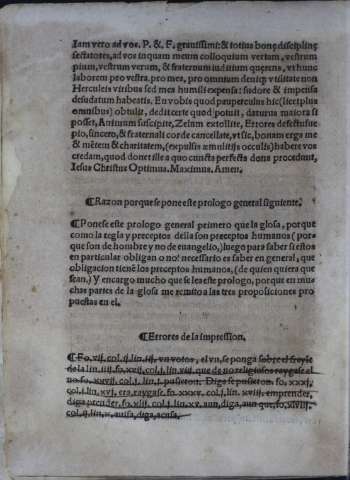 Iam vero ad vos. P. & F. grauissimi: & totius bonę disciplinę
sectatores, ad vos inquam meum colloquium vertam, vestrum
pium, vestrum verum, & fraternum iuditium quęrens, vt hunc
laborem pro vestra. pro mea, pro omnium deniq; vtilitate non
Herculeis viribus sed mea humili expensa: sudore & impensa
desudatum habeatis. En vobis quod pauperculus hic (licet plus
omnibus) obtulit, dedit certe quod potuit, daturus maiora si
posset, Animum suscipite, Zelum extollite, Errores defectusue
pio, sincero, & fraternali corde cancellate, vt sic, bonam erga me
& mētem & charitatem, (expulsis æmulitijs occulis) habere vos
credam, quod donet ille a quo cuncta perfecta dona procedunt,
Iesus Christus Optimus. Maximus. Amen.
¶Razon porque se pone este prologo general siguiente.
¶Ponese este prologo general primero que la glosa, porque
como la regla y preceptos della son preceptos humanos (por-
que son de hombre y no de euangelio,) luego para saber si estos
en particular obligan o no: necessario es saber en general, que
obligacion tienē los preceptos humanos, (de quien quiera que
sean,) Y encargo mucho que se lea este prologo, porque en mu
chas partes de la glosa me remito a las tres proposiciones pro
puestas en el.
¶Errores de la impression.
¶Fo. vij. col. ij. lin. iij. vn votos, el vn, se ponga sobre el frayle
de la lin. iiij. fo. xvij. col. j. lin. viij. que de no religiosos raygase el
no. fo. xxvij. col. j. lin. j. pusieron. Diga se pusieron. fo. xxxj.
col. j. lin. xvj. era, raygase. fo. xxxv. col. j. lin. xviij. emprender,
diga prender. fo. xlj. col. j. lin. xv. aun, diga, aun que, fo. xlviij.
col. ij. lin. x. auisa, diga, acusa.